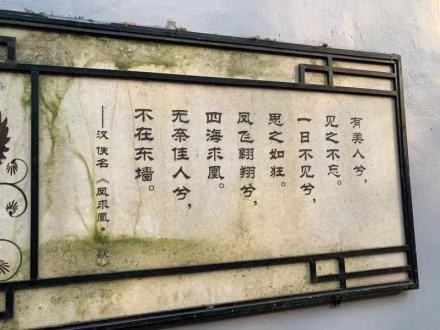 有美人兮，
见之不忘。
一日不见兮，
思之如狂。
凤飞翱翔兮，
四海求凰。
无奈佳人兮，
不在东墙。
——汉 佚名《凤求凰·歌》